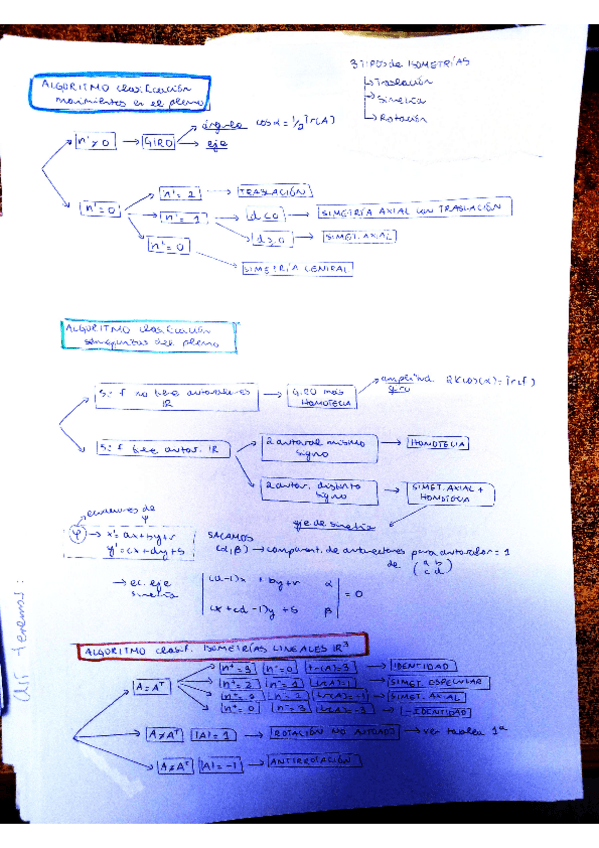 3 TIPOS de ISOMETRÍAS
Traslación
Simetría
Rotación
ALGORITMO clasificación
movimientos en el plano
n'>0 → GIRO
ángulo cos α = 1/2 Tr(A)
eje
n'=0
n'=2 → TRASLACIÓN
n'=1
d≤0 → SIMETRÍA AXIAL CON TRASLACIÓN
d>0 → SIMET. AXIAL
n'=0
SIMETRÍA CENTRAL
ALGORITMO clasificación
semejantes del plano
Si f no tiene autovalores
IR
GIRO más
HOMOTECIA
amplitud 2K cos(α) = Tr(f)
giro
Si f tiene autov. IR
2 autoval mismo
signo
HOMOTECIA
2 autov. distinto
signo
SIMET. AXIAL +
HOMOTECIA
eje de simetría
ecuaciones de
φ
φ → x' = ax + by + r
y' = cx + dy + s
SACAMOS
(α, β) → component. de autovectores para autovalor = 1
de (a b
c d)
→ ec. eje
simetría
(a-1)x + by + r α
= 0
cx + (d-1)y + s β
Así tenemos:
ALGORITMO clasif. ISOMETRÍAS LINEALES IR³
A = Aᵀ
n⁺=3 n⁻=0 tr(A)=3 → IDENTIDAD
n⁺=2 n⁻=1 tr(A)=1 → SIMET. ESPECULAR
n⁺=1 n⁻=2 tr(A)=-1 → SIMET. AXIAL
n⁺=0 n⁻=3 tr(A)=-3 → -IDENTIDAD
A≠Aᵀ |A|=1 → ROTACIÓN NO AUTOADJ → ver tarea 1ª
A≠Aᵀ |A|=-1 → ANTIRROTACIÓN